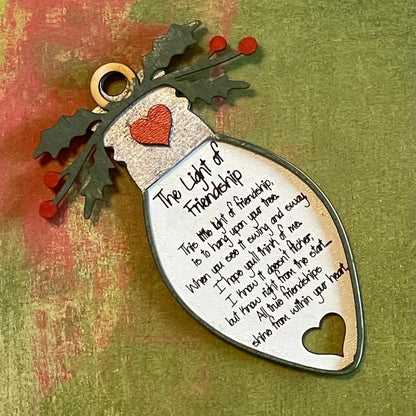 The Light of
Friendship
This little light of friendship,
is to hang upon your tree.
When you see it swing and sway
I hope you'll think of me.
I know it doesn't flicker,
but know right from the start...
All true friendships
shine from within your heart.